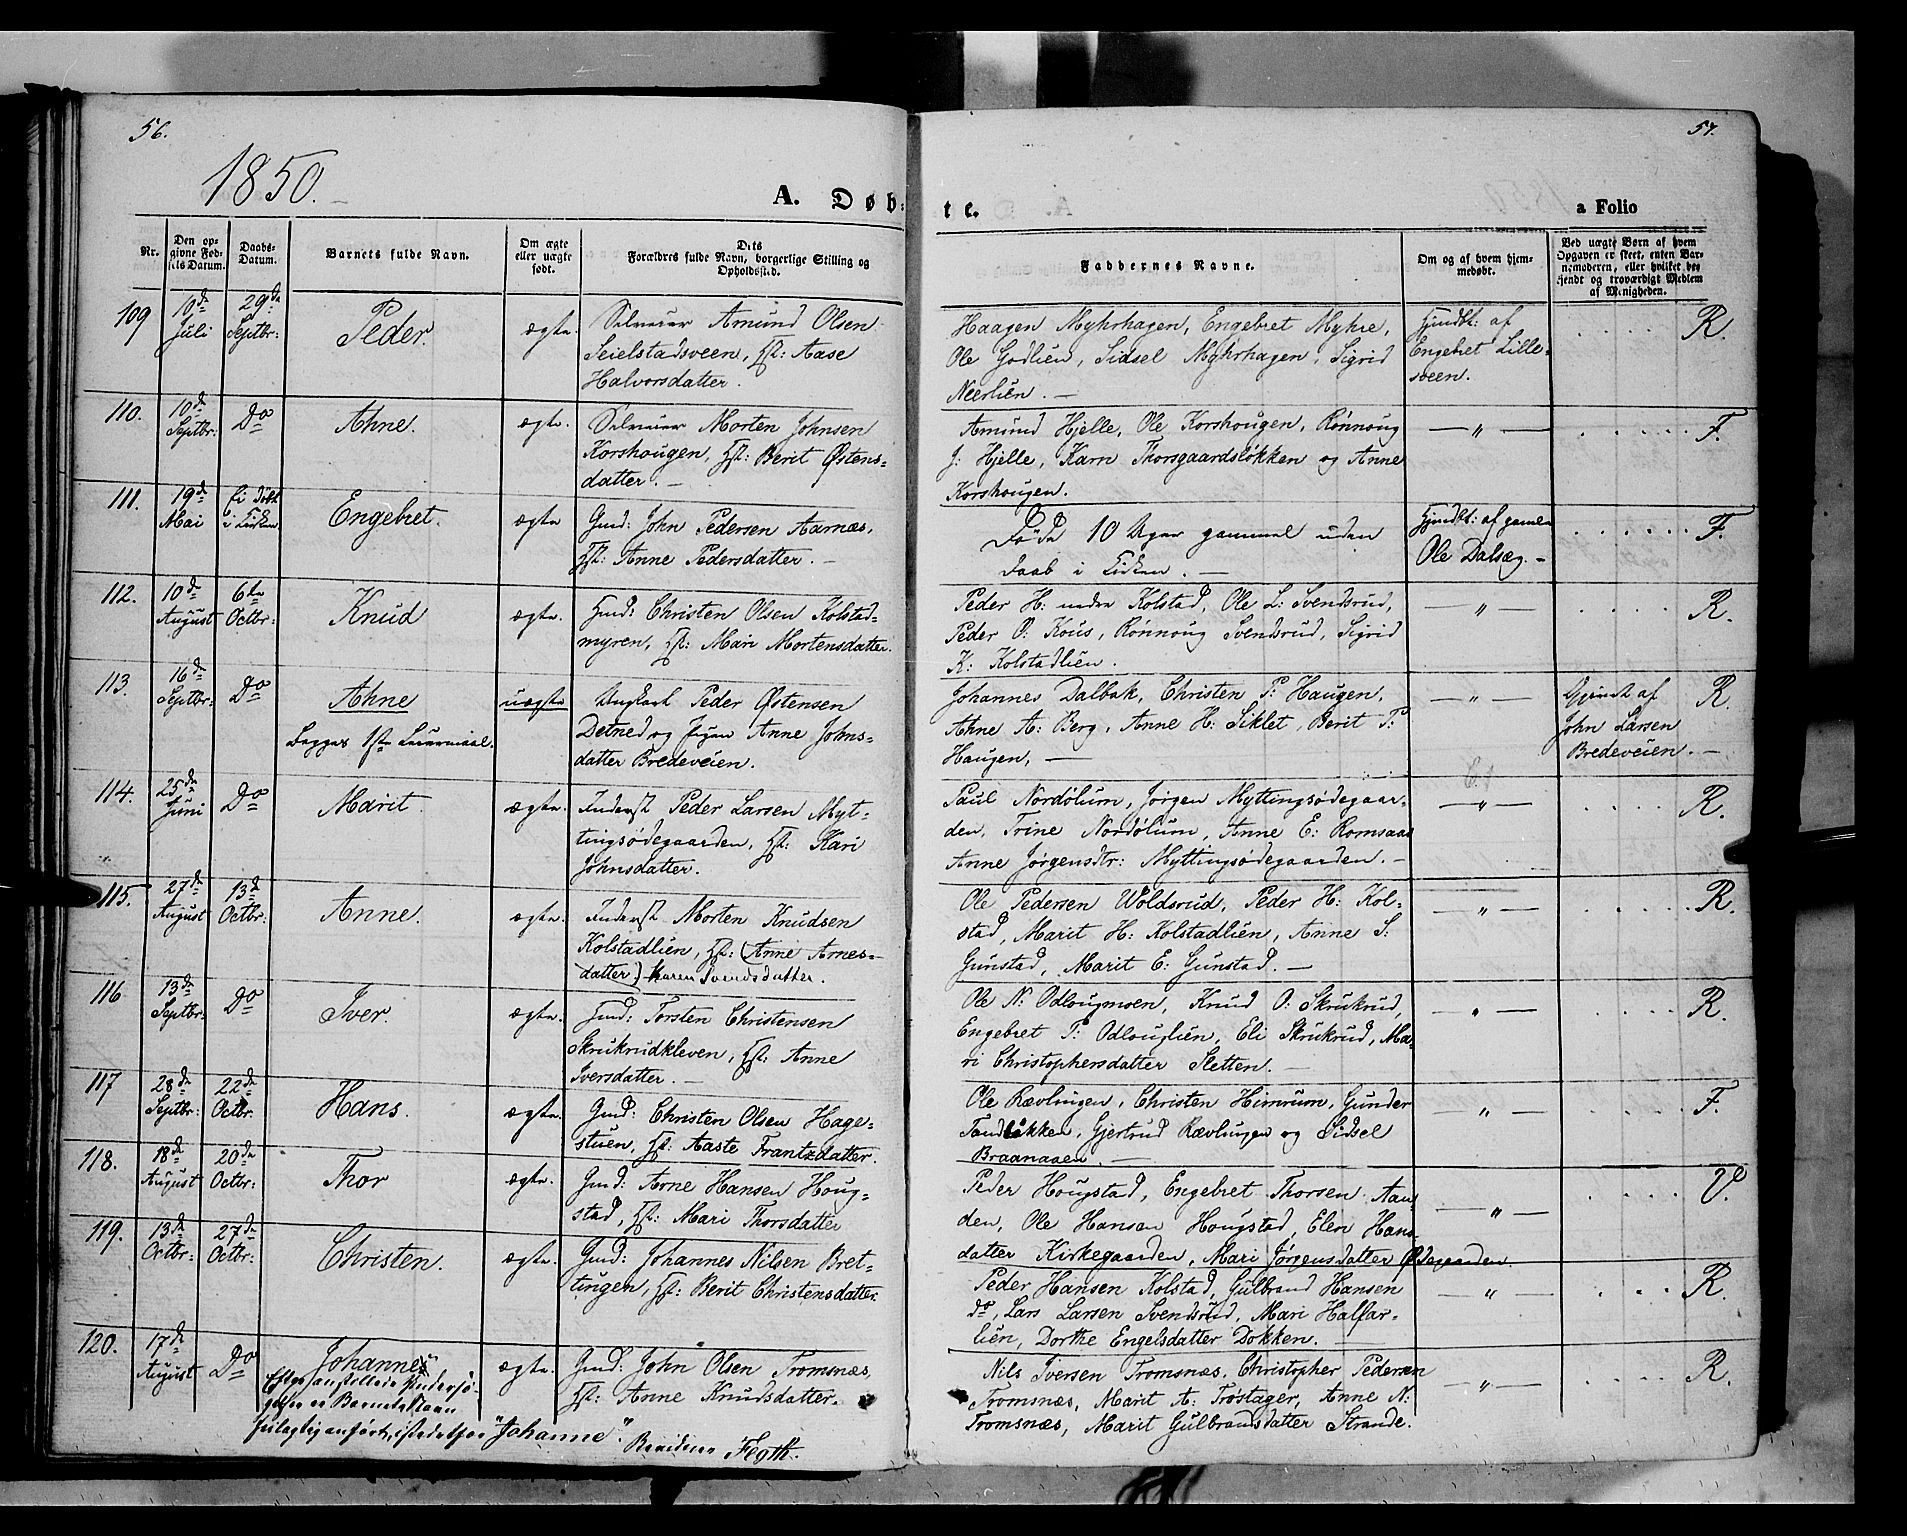 56.
1850.
A. Døb-
Nr.
Den op-
givne Fød-
sels Datum.
Daabs-
Datum.
Barnets fulde Navn.
Om ægte
eller uægte
født.
Dets
Forældres fulde Navn, borgerlige Stilling og
Opholdssted.
109
10de
Juli
29de
Septbr:
Peder.
ægte.
Selveier Amund Olsen
Seielstadsveen, Hst: Aase
Halvorsdatter.
110.
10de
Septbr:
Do
Ahne.
ægte.
Selveier Morten Johnsen
Korshougen, Hst: Berit Østens-
datter. —
111.
19de
Mai
Ei døbt
i Kirken
Engebret.
ægte
Gmd: John Pedersen Aarnæs,
Hst: Anne Pedersdatter. —
112.
10de
August
6te
Octbr:
Knud
ægte.
Hmd: Christen Olsen Kolstad-
myren, Hst: Mari Mortensdatter.
113.
16de
Septbr:
Do
Ahne
Begges 1ste Leiermaal.
uægte
Ungkarl Peder Østensen
Detned og Pigen Anne Johns-
datter Bredeveien.
114.
25de
Juni
Do
Marit.
ægte.
Inderst Peder Larsen Myt-
tingsødegaarden, Hst: Kari
Johnsdatter.
115.
27de
August
13de
Octbr:
Anne.
ægte.
Inderst Morten Knudsen
Kolstadlien, Hst: (Anne Arnes-
datter) Karen Svendsdatter.
116
13de
Septbr:
Do
Iver.
ægte.
Gmd: Torsten Christensen
Skrukrudkleven, Hst: Anne
Iversdatter. —
117
28de
Septbr:
22de
Octbr.
Hans.
ægte.
Gmd: Christen Olsen Hage-
stuen, Hst: Aaste Frantzdatter.
118.
18de
August
20de
Octbr:
Thor
ægte.
Gmd: Arne Hansen Houg-
stad, Hst: Mari Thorsdatter
119.
13de
Octbr:
27de
Octbr:
Christen.
ægte.
Gmd: Johannes Nilsen Bret-
tingen, Hst: Berit Christensdatter.
120.
17de
August
Do
Johannes
Efter anstillede Undersø-
gelse er Barnets Navn
feilagtig anført, istedetfor "Johanne".
Beridner Fegth.
ægte.
Gmd: John Olsen Tromsnæs,
Hst: Anne Knudsdatter.
57.
te.
a Folio
Faddernes Navne.
Om og af hvem hjem-
medøbt.
Ved uægte Børn af hvem
Opgaven er skeet, enten Bar-
nemoderen, eller hvilket be-
kjendt og troværdigt Medlem
af Menigheden.
Haagen Myhrhagen, Engebret Myhre,
Ole Godlien, Sidsel Myhrhagen, Sigrid
Neerlien. —
Hjmdbt: af
Engebret Lille-
sveen.
R.
Amund Hjelle, Ole Korshougen, Rønnoug
J: Hjelle, Karn Thorsgaardsløkken og Anne
Korshougen.
— " —
F.
Døde 10 Uger gammel uden
Daab i Kirken. —
Hjmdbt: af gamle
Ole Dalsæg. —
F.
Peder H: nedre Kolstad, Ole L: Svendsrud,
Peder O: Kous, Rønnoug Svendsrud, Sigrid
K: Kolstadlien.
— " —
R.
Johannes Dalbak, Christen P: Haugen,
Ahne A: Berg, Anne H: Siklet, Berit P:
Haugen, —
— " —
Opgivet af
John Larsen
Bredeveien. —
R.
Paul Nordølum, Jørgen Myttingsødegaar-
den, Trine Nordølum, Anne E: Romsaas
Anne Jørgensdtr: Myttingsødegaarden. —
— " —
R.
Ole Pedersen Woldsrud, Peder H: Kol-
stad, Marit H: Kolstadlien, Anne S:
Gunstad, Marit E: Gunstad. —
— " —
R.
Ole N: Odlougmoen, Knud O: Skrukrud,
Engebret P: Odlouglien, Eli Skrukrud, Ma-
ri Christophersdatter Sletten. —
— " —
R.
Ole Rævlingen, Christen Himrum, Gunder
Tandløkken, Gjertrud Rævlingen og Sidsel
Braanaaen. —
— " —
F.
Peder Hougstad, Engebret Thorsen Aan-
den, Ole Hansen Hougstad, Elen Hans-
datter Kirkegaarden, Mari Jørgensdatter Ødegaarden.
— " —
V.
Peder Hansen Kolstad, Gulbrand Hansen
do, Lars Larsen Svendsrud, Mari Halfar-
lien, Dorthe Engelsdatter Dokken. —
— " —
R.
Nils Iversen Tromsnæs, Christopher Pedersen
Tromsnæs, Marit A: Trøstager, Anne N:
Tromsnæs, Marit Gulbransdatter Strande.
— " —
R.